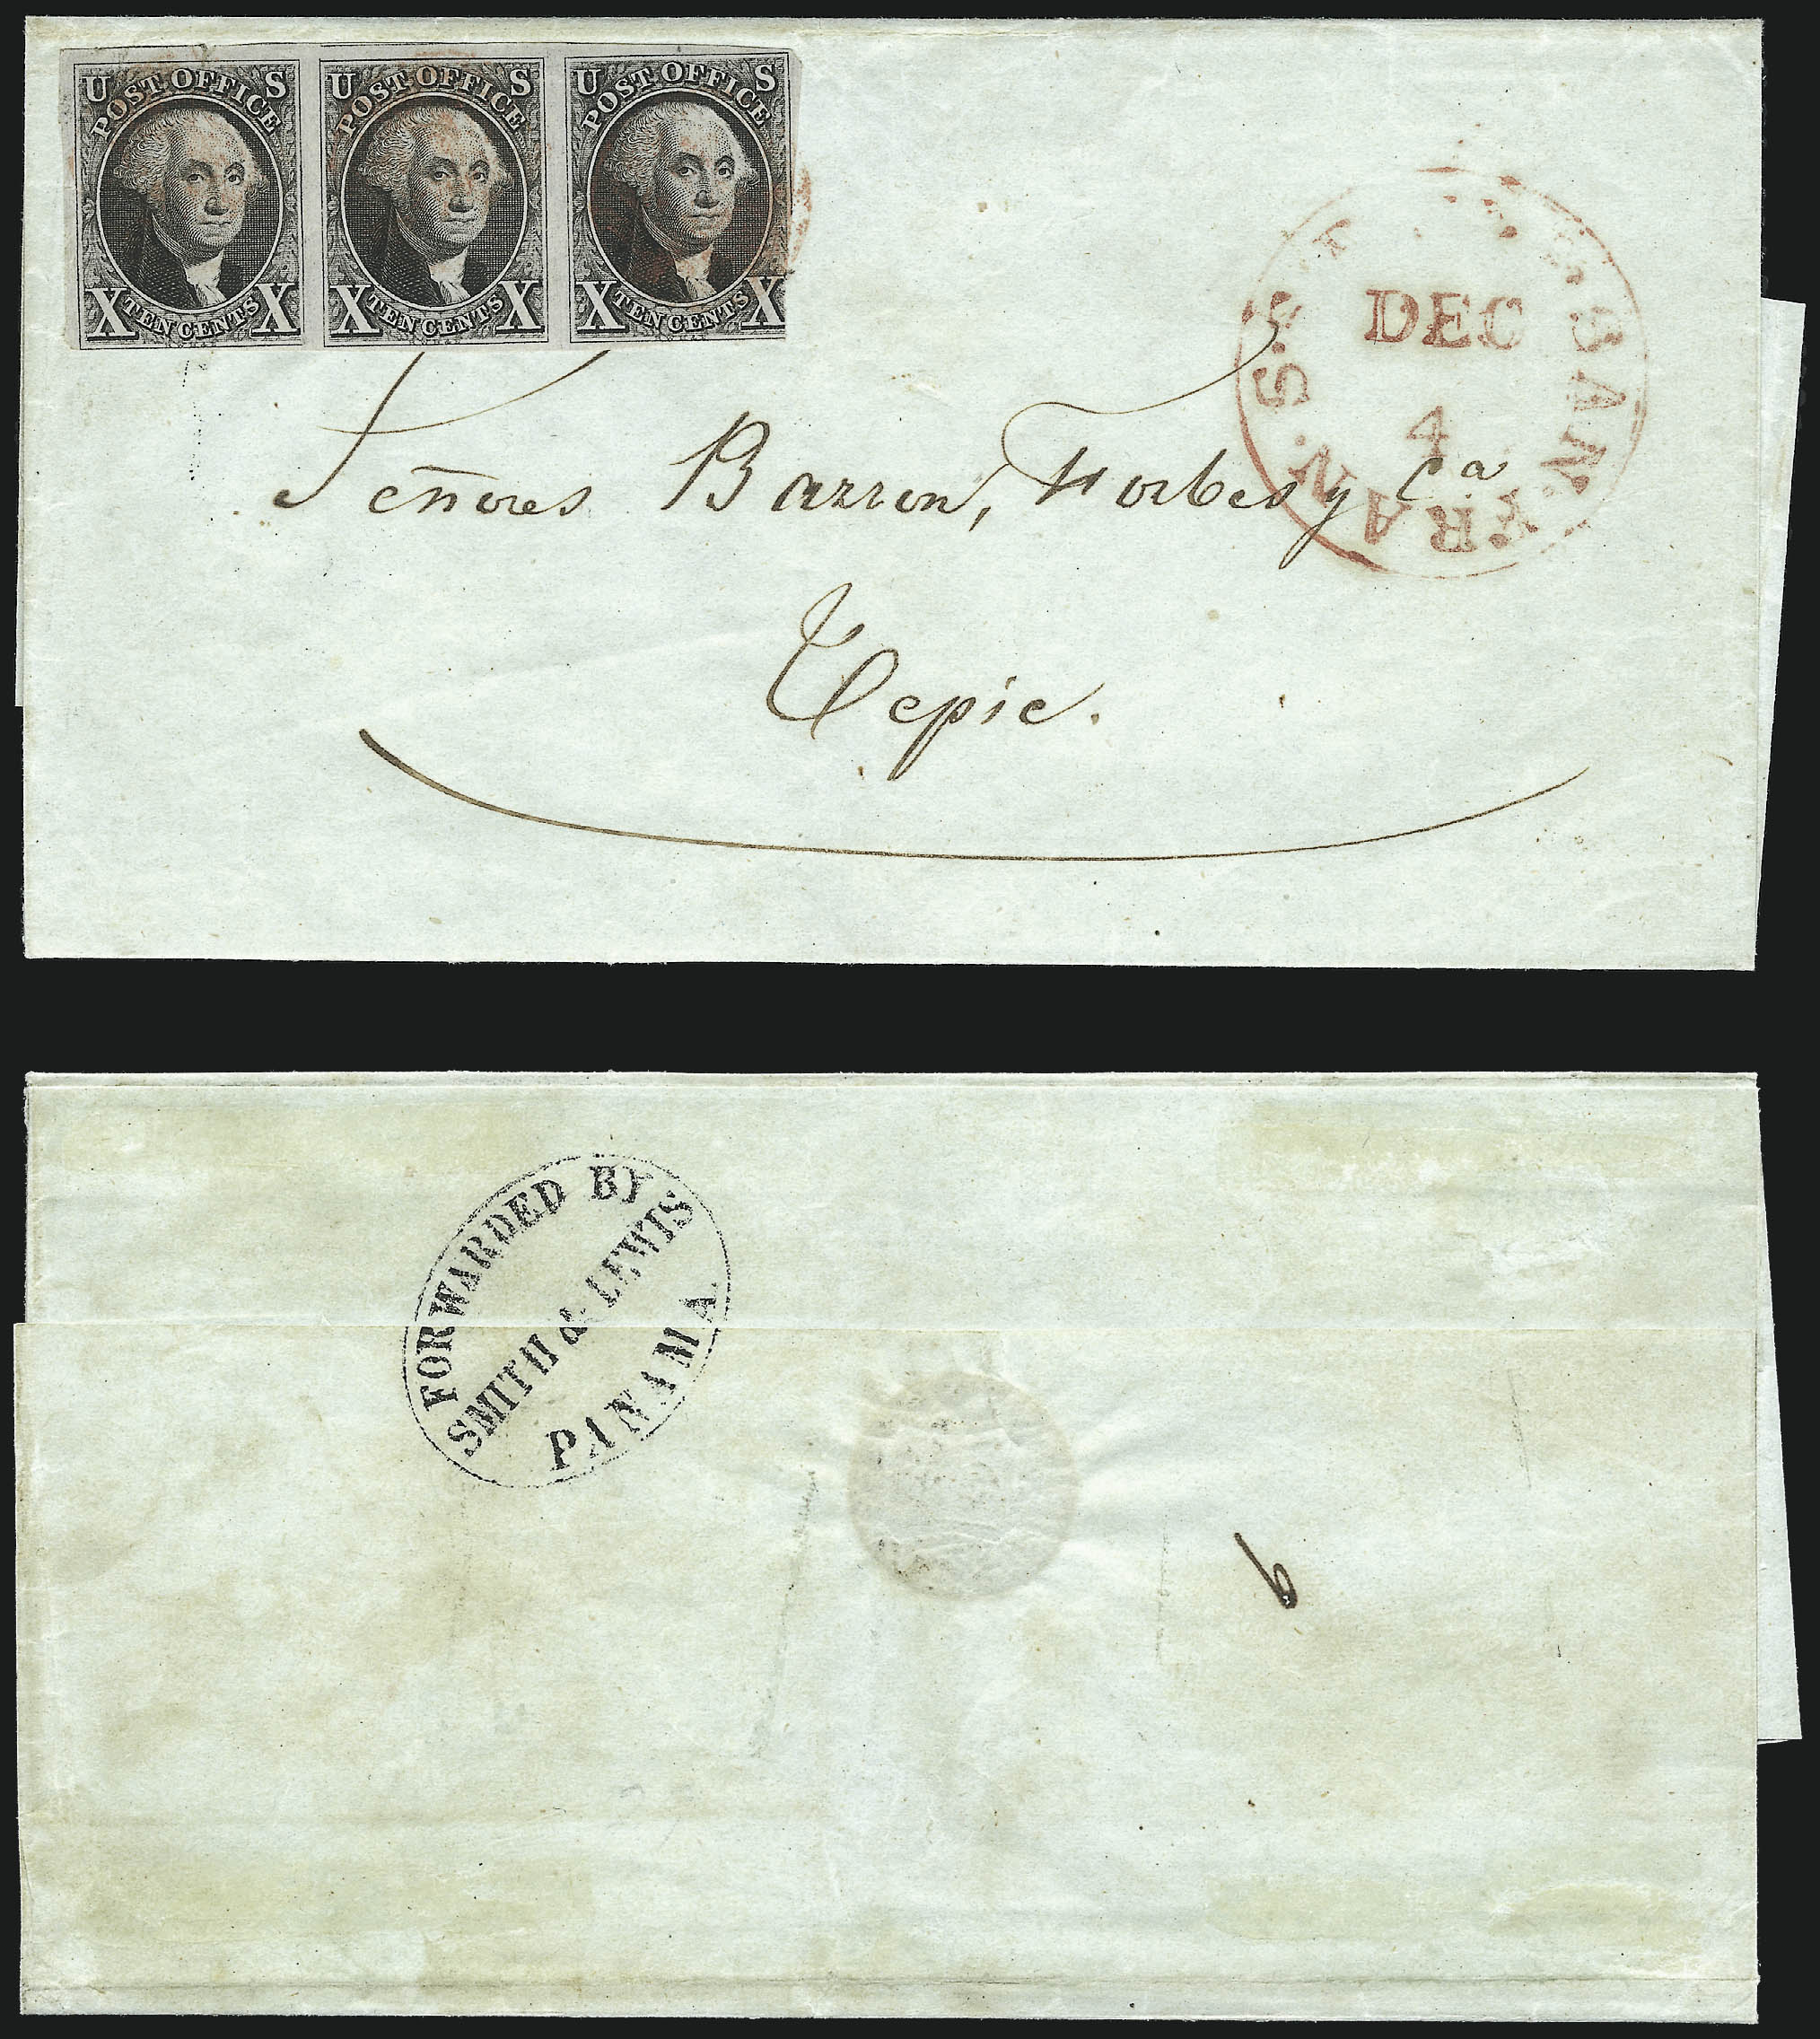 U S
POST OFFICE
X TEN CENTS X
U S
POST OFFICE
X TEN CENTS X
U S
POST OFFICE
X TEN CENTS X
SAN FRAN S.
DEC
4
Señores Barron, Forbes y Ca
Tepic.
FORWARDED BY
SMITH & LEWIS
PANAMA